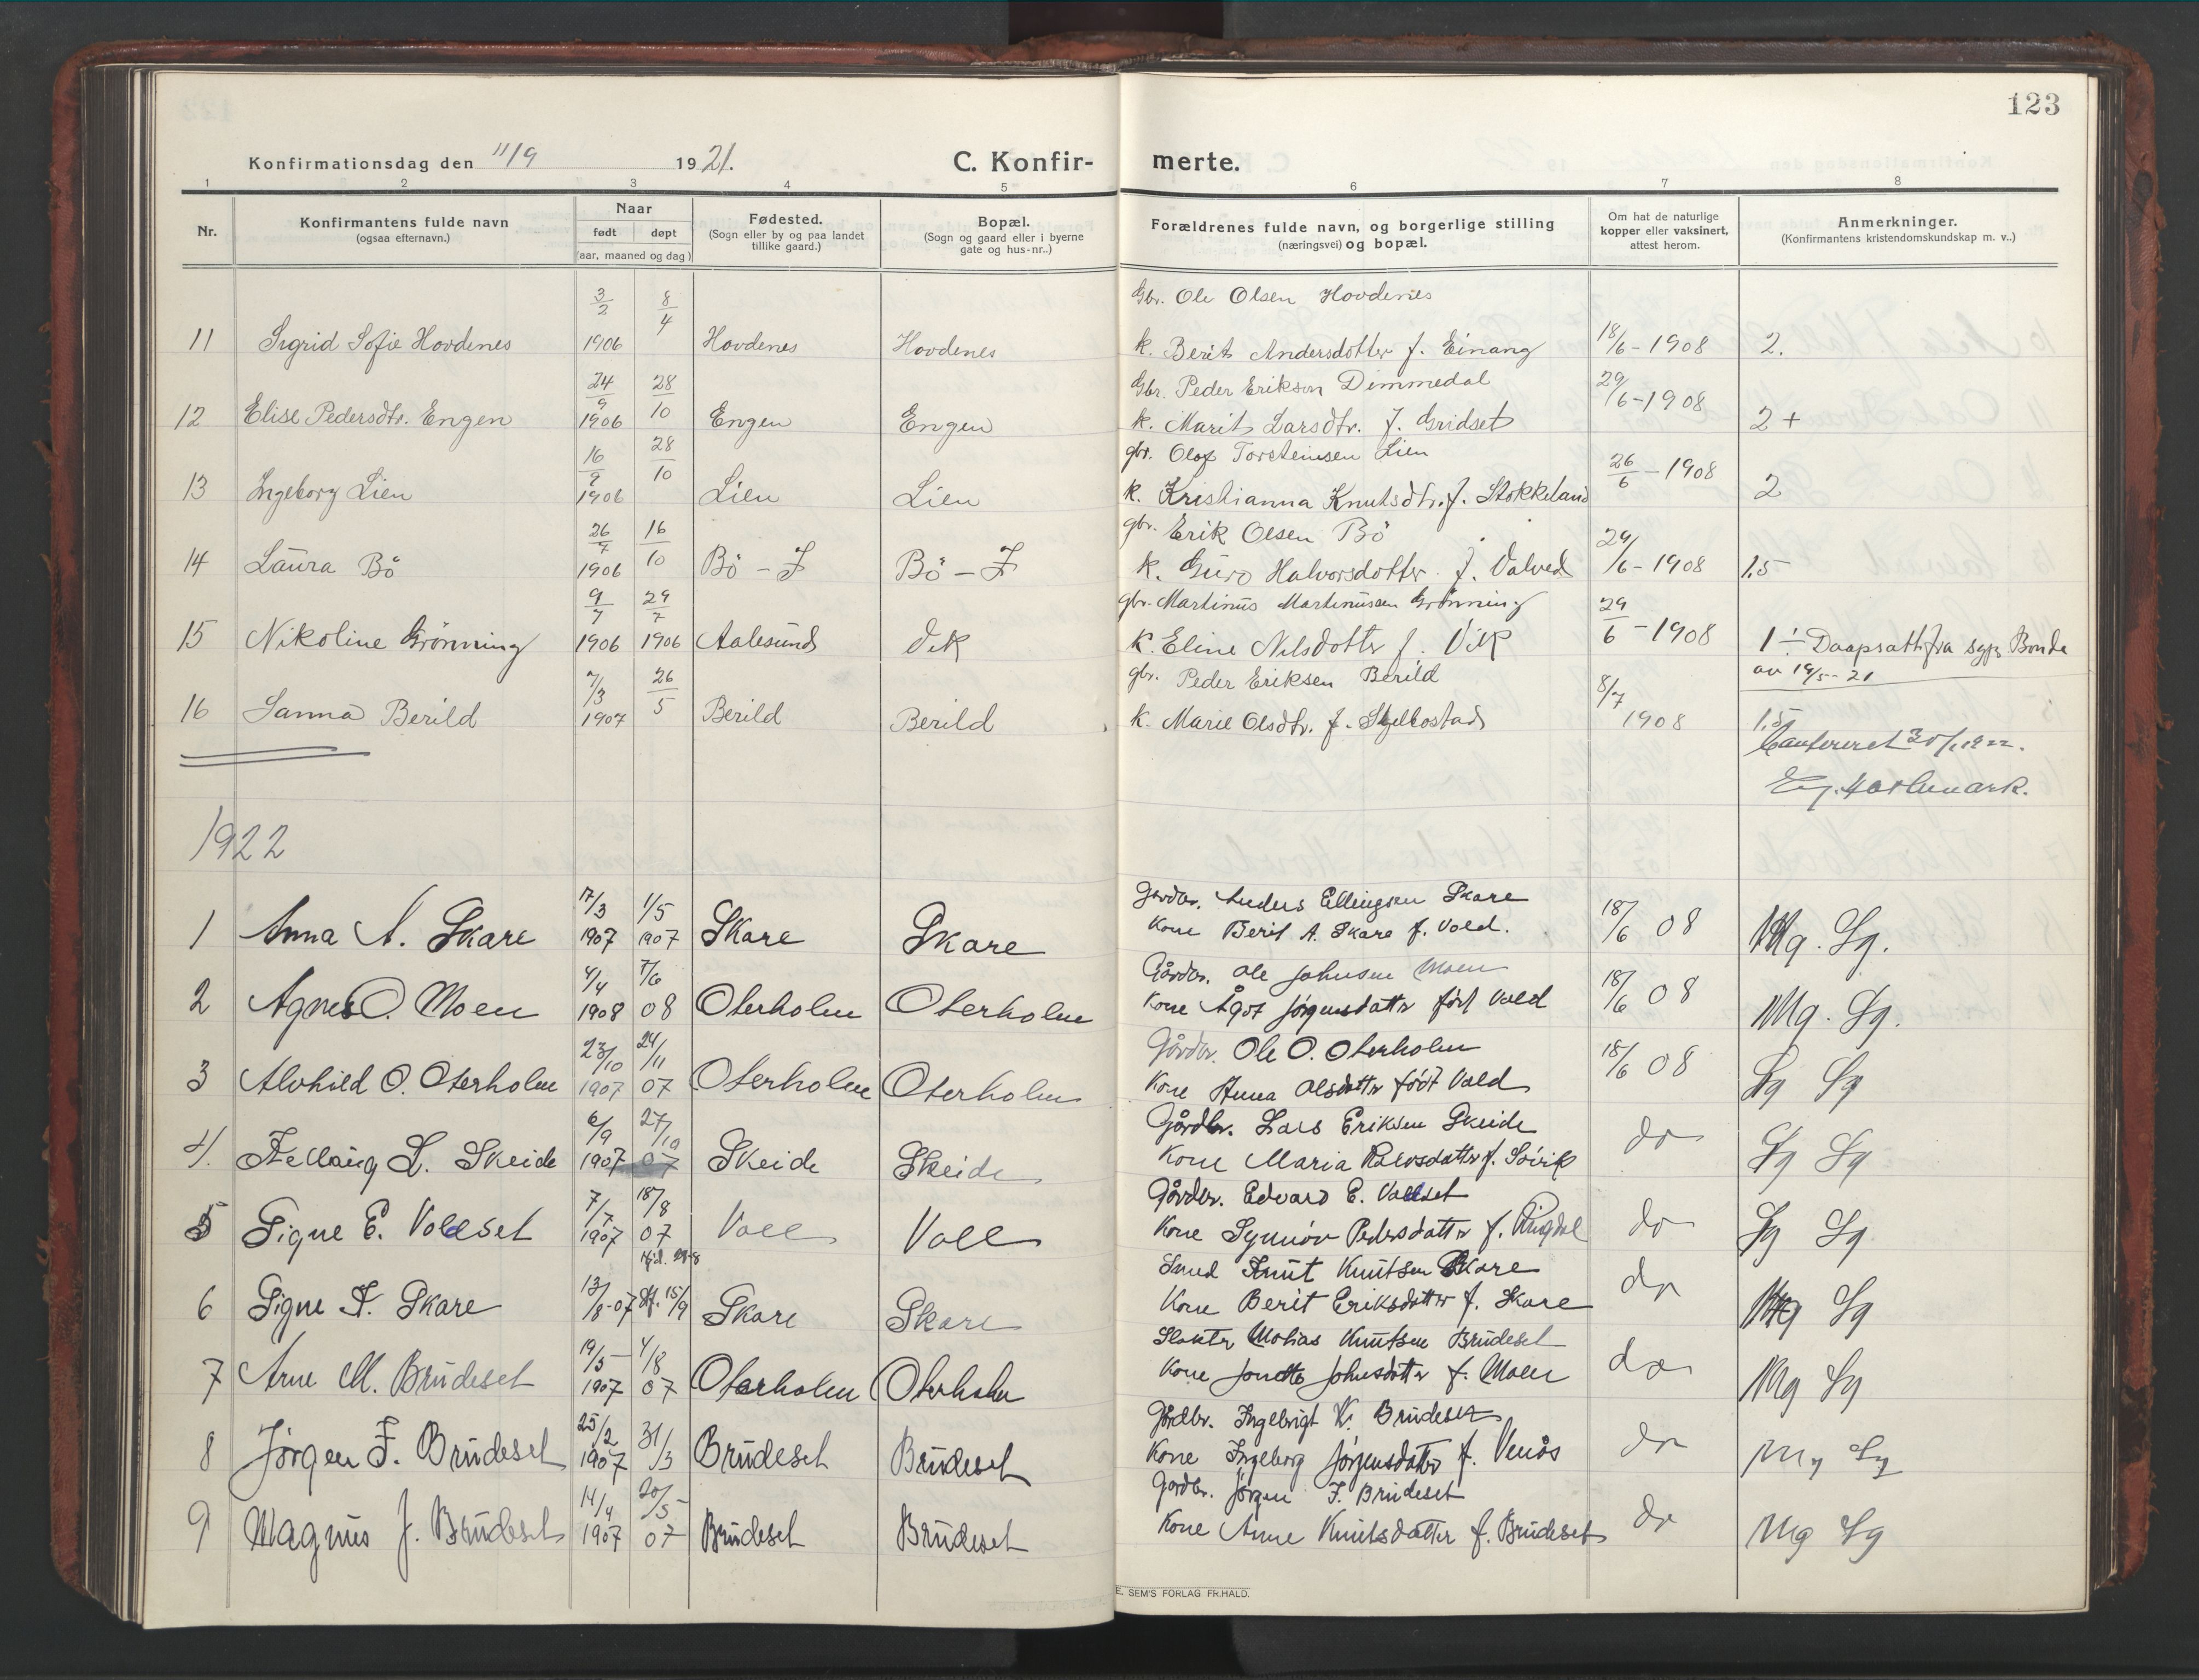 123
Konfirmationsdag den 11/9 1921. C. Konfir- merte.
1 2 3 4 5 6 7 8
Nr.
Konfirmantens fulde navn
(ogsaa efternavn.)
Naar
født døpt
(aar, maaned og dag)
Fødested.
(Sogn eller by og paa landet
tillike gaard.)
Bopæl.
(Sogn og gaard eller i byerne
gate og hus-nr..)
Forældrenes fulde navn, og borgerlige stilling
(næringsvei) og bopæl.
Om hat de naturlige
kopper eller vaksinert,
attest herom.
Anmerkninger.
(Konfirmantens kristendomskundskap m. v..)
3/2 8/4 Gbr. Ole Olsen Hovdenes
11 Sigrid Sofie Hovdenes 1906 Hovdenes Hovdenes k. Berit Andersdotter f. Einang 18/6-1908 2.
24/9 28/10 Gbr. Peder Erikson Dimmedal
12 Elise Pedersdtr. Engen 1906 Engen Engen k. Marit Larsdtr. f. Gridset 29/6-1908 2 +
16/9 28/10 gbr. Olof Torsteinsen Lien
13 Ingeborg Lien 1906 Lien Lien k. Kristianna Knutsdtr. f. Stokkeland 26/6-1908 2
26/7 16/10 gbr. Erik Olsen Bö
14 Laura Bö 1906 Bö - J Bö - J k. Guro Halvorsdotter f. Valved 29/6-1908 1.5
9/7 29/7 gbr. Martinus Martinussen Grönning
15 Nikoline Grönning 1906 1906 Aalesund Vik k. Eline Nilsdotter f. Vik 29/6-1908 1÷ Daapsatt. fra Bonde
7/3 26/5 gbr. Peder Eriksen Berild av 19/5-21
16 Sanna Berild 1907 Berild Berild k. Marie Olsdtr. f. Skjelbostad 8/7 1908 1,5
1922
17/3 1/5 Gardbr. Anders Ellingsen Skare
1 Anna A. Skare 1907 1907 Skare Skare Kone Berit A. Skare f. Vold. 18/6 08 Mg. Sg.
4/4 7/6 Gårdbr. Ole Johnsen Moen
2 Agnes O. Moen 1908 08 Oterholm Oterholm Kone Ågot Jörgensdatter född Vold 18/6 08 Mg. Sg.
23/10 24/11 Gårdbr. Ole O. Oterholm
3 Alvhild O. Oterholm 1907 07 Oterholm Oterholm Kone Anna Olsdatter född Vold 18/6 08 Sg Sg
6/9 27/10 Gårdbr. Lars Eriksen Skeide
4. L. Skeide 1907 07 Skeide Skeide Kone Maria f. Sövik do Sg Sg
7/7 18/8 Gårdbr. Edvard E. Vollset
5 Signe E. Vollset 1907 07 Voll Voll Kone Synnöv Pedersdatter f. Ringdal do Sg Sg
Smed Knut Knutsen Skare
6 Signe K. Skare 13/8-07 15/9 Skare Skare Kone Berit Eriksdatter f. Skare do Mg Sg
19/5 4/8 Slakter Mathias Knutsen Brudeset
7 Arne M. Brudeset 1907 07 Oterholm Oterholm Kone Jonetta Johnsdatter f. Moen do Mg Sg
25/2 31/3 Gårdbr. Ingebrigt K. Brudeset
8 Jörgen I. Brudeset 1907 Brudeset Brudeset Kone Ingeborg Jörgensdatter f. Venås do Mg Sg
14/4 20/5 Gardbr. Jörgen I. Brudeset
9 Magnus J. Brudeset 1907 07 Brudeset Brudeset Kone Anne Knutsdatter f. Brudeset do Mg Sg
E. SEM'S FORLAG FR.HALD.